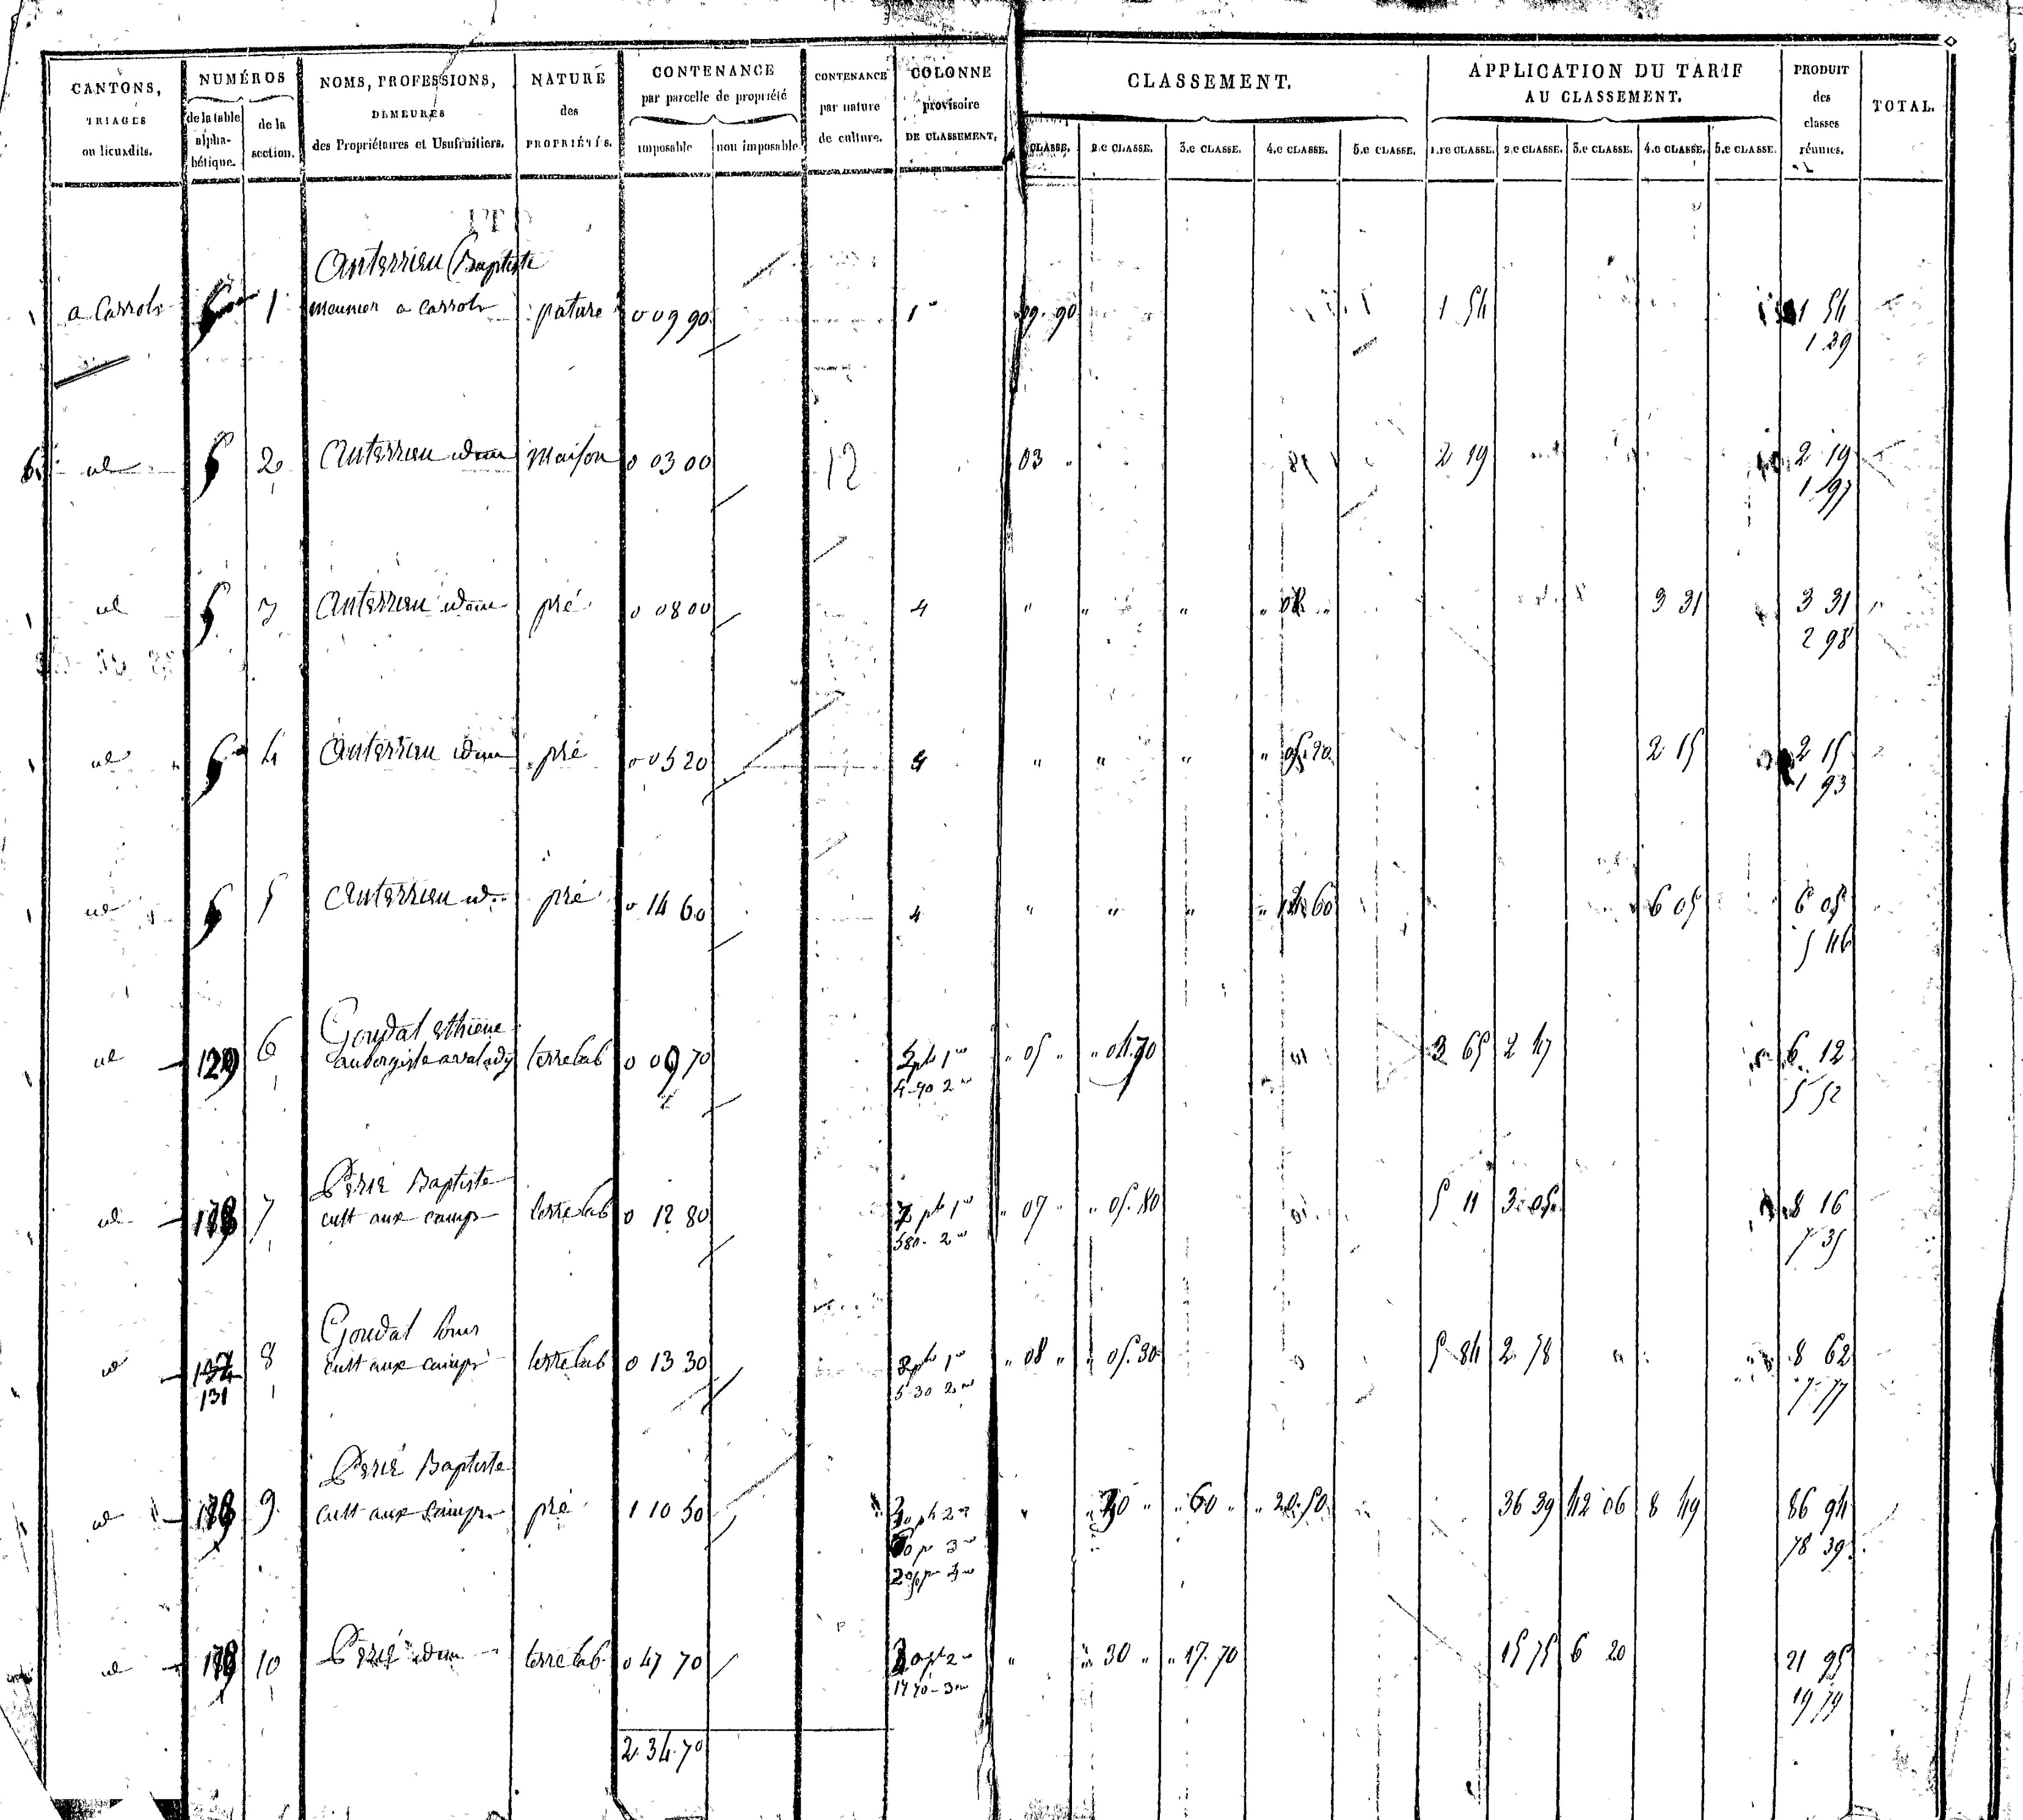 CANTONS, TRIAGES ou lieuxdits.
NUMÉROS
de la table alphabétique.
de la section.
NOMS, PROFESSIONS, DEMEURES des Propriétaires et Usufruitiers.
NATURE des PROPRIÉTÉS.
CONTENANCE par parcelle de propriété
imposable
non imposable
CONTENANCE par nature de culture.
COLONNE provisoire DE CLASSEMENT.
CLASSEMENT.
CLASSE. 2.e CLASSE. 3.e CLASSE. 4.e CLASSE. 5.e CLASSE.
APPLICATION DU TARIF AU CLASSEMENT.
1.re CLASSE. 2.e CLASSE. 3.e CLASSE. 4.e CLASSE. 5.e CLASSE.
PRODUIT des classes réunies.
TOTAL.
Anterrieu Baptiste
a Carrols 1 meunier a Carrols pature 0 09 90 1 09.90 1 54 1 54
1 39
id 2 Anterrieu idem Maison 0 03 00 12 03 " 2 19 2 19
1 97
id 3 Anterrieu idem pré 0 08 00 4 " " " " 08 " 3 31 3 31
2 98
id 4 Anterrieu idem pré 0 05 20 4 " " " " 05.20 2 15 2 15
1 93
id 5 Anterrieu id pré 0 14 60 4 " " " " 14 60 6 05 6 05
5 46
Goudat Ethiene
id 129 6 aubergiste a valady terre lab 0 09 70 1 " 05 " " 04.70 3 65 2 47 6 12
2 5 52
Perié Baptiste
id 7 cult aux camps terre lab 0 12 80 7 1 " 07 " " 05.80 5 11 3.05 8 16
580 2 7 35
Goudat Louis
id 8 cult aux camps terre lab 0 13 30 8 1 " 08 " " 05.30 5 84 2 78 8 62
131 5 30 2 7 77
Perié Baptiste
id 9 cult aux camps pré 1 10 50 2 " " 30 " " 60 " " 20.50 36 39 42 06 8 49 86 94
3 78 39
id 10 Perié idem terre lab 0 47 70 2 " " 30 " " 17.70 15 75 6 20 21 95
17 70 3 19 79
2.34.70